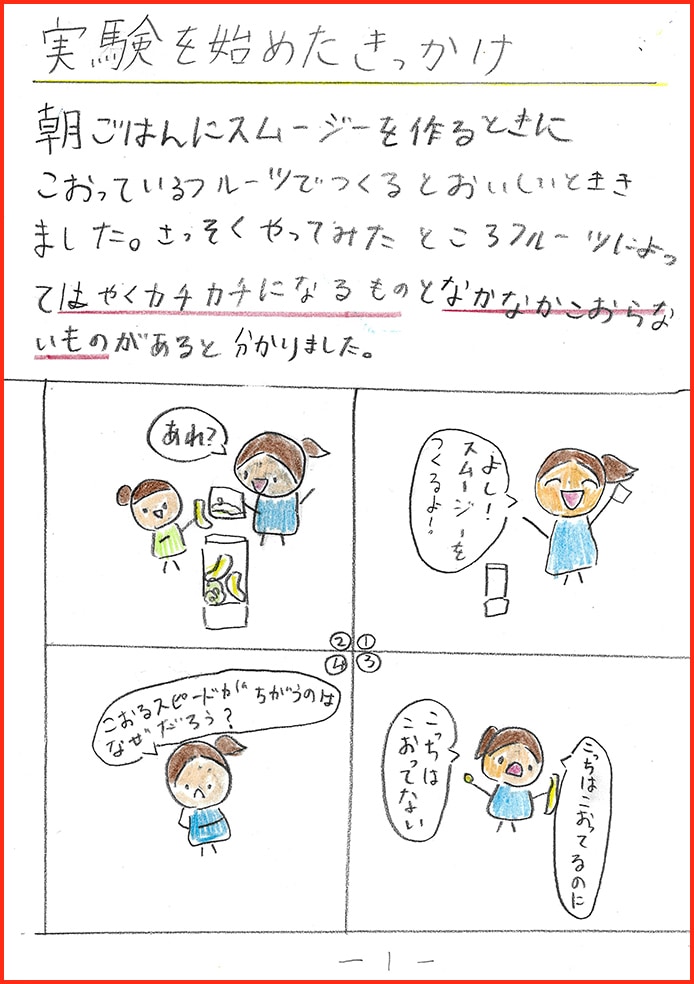 実験を始めたきっかけ
朝ごはんにスムージーを作るときに
こおっているフルーツでつくるとおいしいとき
ました。さっそくやってみたところフルーツによっ
てはやくカチカチになるものとなかなかこおらな
いものがあると分かりました。
よし!
スムージーを
つくるよ!
①
あれ?
②
こっちはこおってるのに
こっちは
こおってない
③
こおるスピードがちがうのは
なぜだろう?
④
-1-